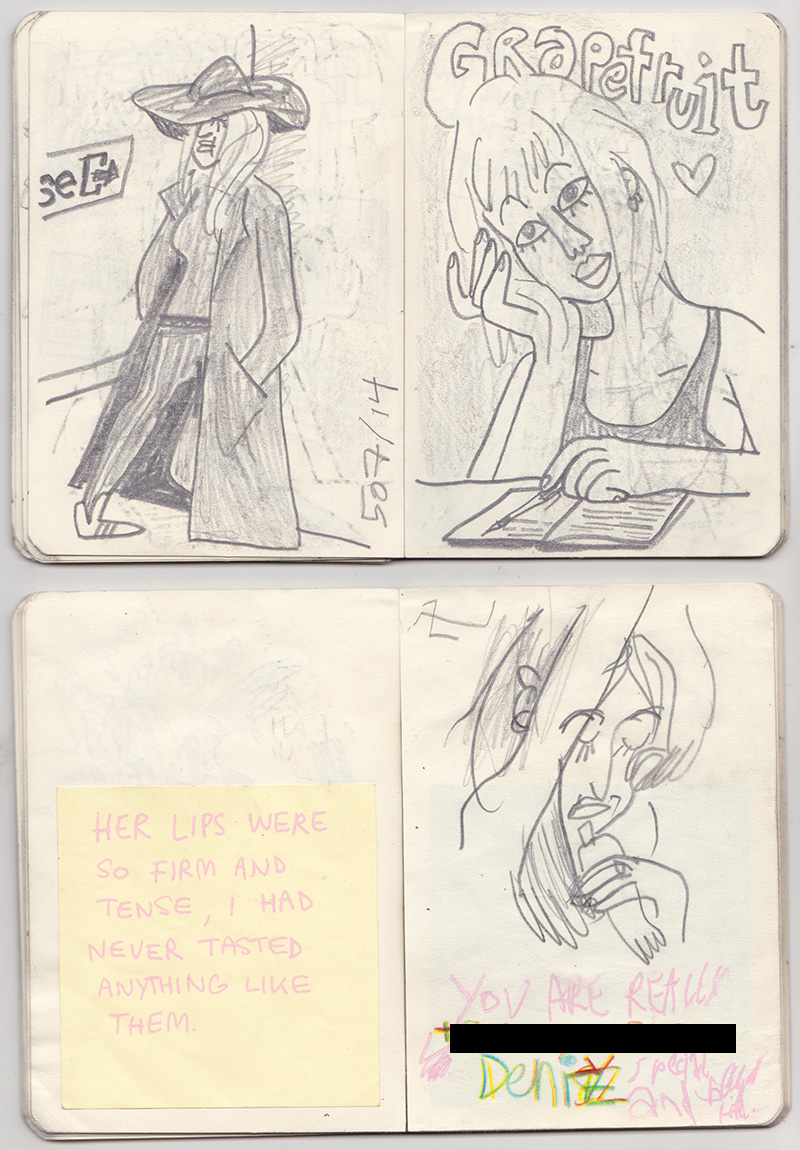 seL
GRapefruit
507/14
HER LIPS WERE
SO FIRM AND
TENSE, I HAD
NEVER TASTED
ANYTHING LIKE
THEM.
YOU ARE REALLY
Deniz
special
and